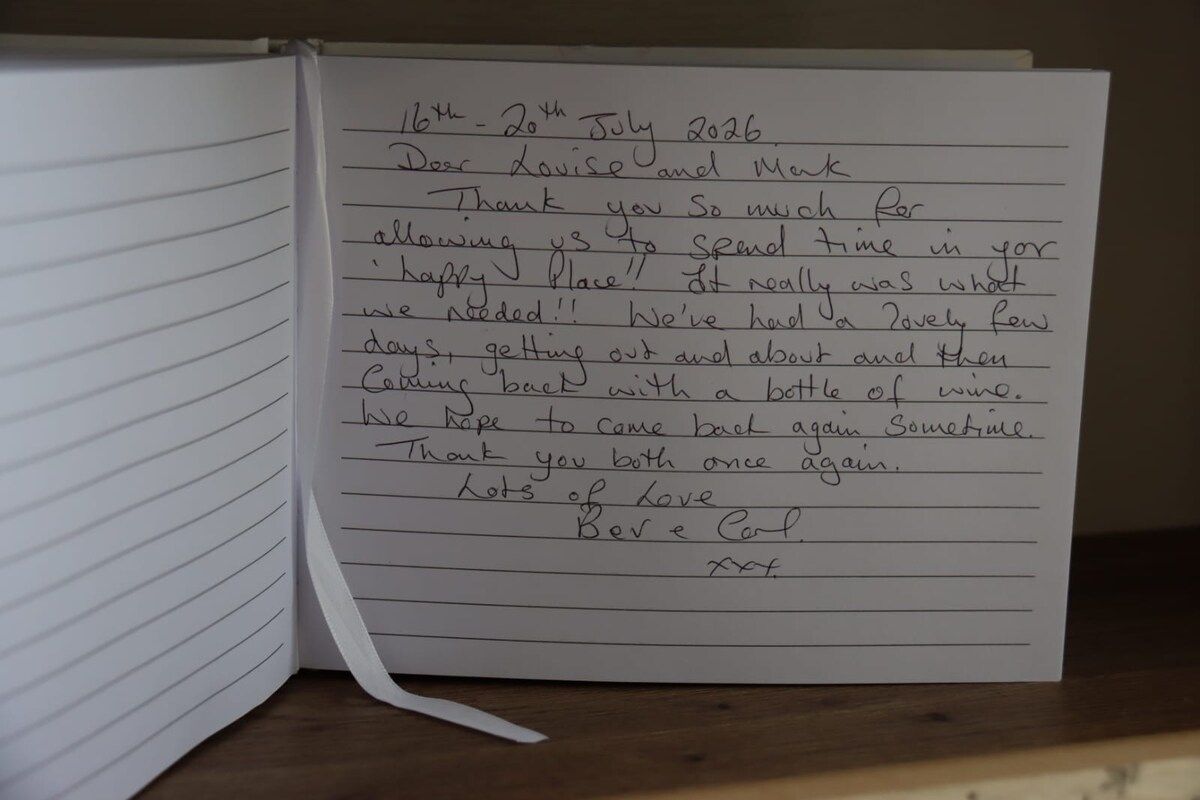 16th - 20th July 2026.
Dear Louise and Mark
Thank you so much for
allowing us to spend time in yor
'happy Place!! It really was what
we needed!! We've had a lovely few
days, getting out and about and then
Coming back with a bottle of wine.
We hope to come back again Sometime.
Thank you both once again.
Lots of Love
Bev e Carl.
xxx.